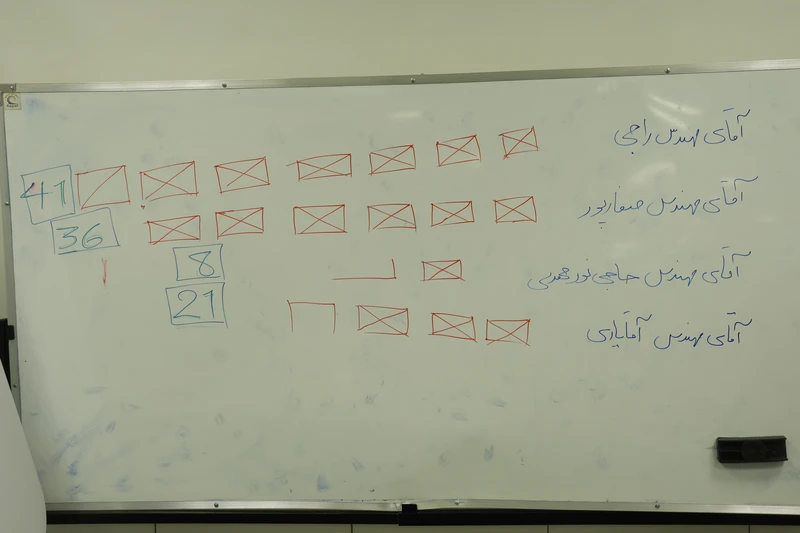 آقای مهندس راجی 41
آقای مهندس صفارپور 36
آقای مهندس حاجی نورمحمدی 8
آقای مهندس آقایاری 21